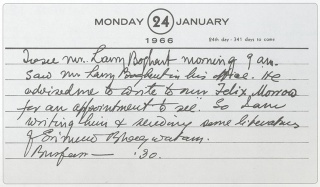 MONDAY 24 JANUARY
1966
24th day - 341 days to come
To see Mr. Larry Bogart morning 9 am.
Saw Mr. Larry in his office. He
advised me to write to our Felix Morrow
for an appointment to see. So I am
writing him & sending some literatures
of
:30.